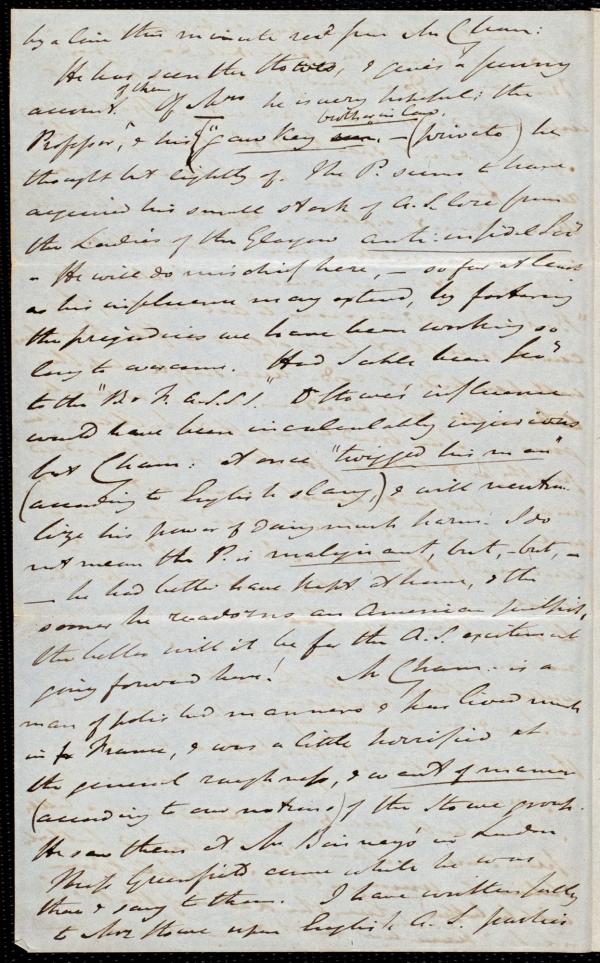 by a line this minute recd from Mr Cham:
He has seen the Stowes, & gives a funny
account of them. Of Mrs he is very hopeful; the
Professor, & his ("gawkey son brother in law" - (private) he
thought but lightly of. The P. seems to have
acquired his small stock of A.S. lore from
the Ladies of the Glasgow anti-infidel Socy
- He will do mischief here, - so far at least
as his influence may extend, by fostering
the prejudices we have been working so
long to overcome. Had Soble been Secy
to the "B & F. A.S.S." D Stowe's influence
would have been incalculably injurious
but Cham: at once "twigged his man"
(according to English slang,) & will neutra-
lize his power of doing much harm. I do
not mean the P. is malignant, but, - but, -
- he had better have kept at home, & the
sooner he readorns an American pulpit,
the better will it be for the A.S. excitement
going forward here! Mr Cham: is a
man of polished manners & has lived much
in France, & was a little horrified at
the general roughness, & want of manner
(according to our notions) of the Stowe group.
He saw them at Mr Binney's in London
Miss Greenfield came while he was
there & sang to them. I have written fully
to Mrs Stowe upon English A. S. parties